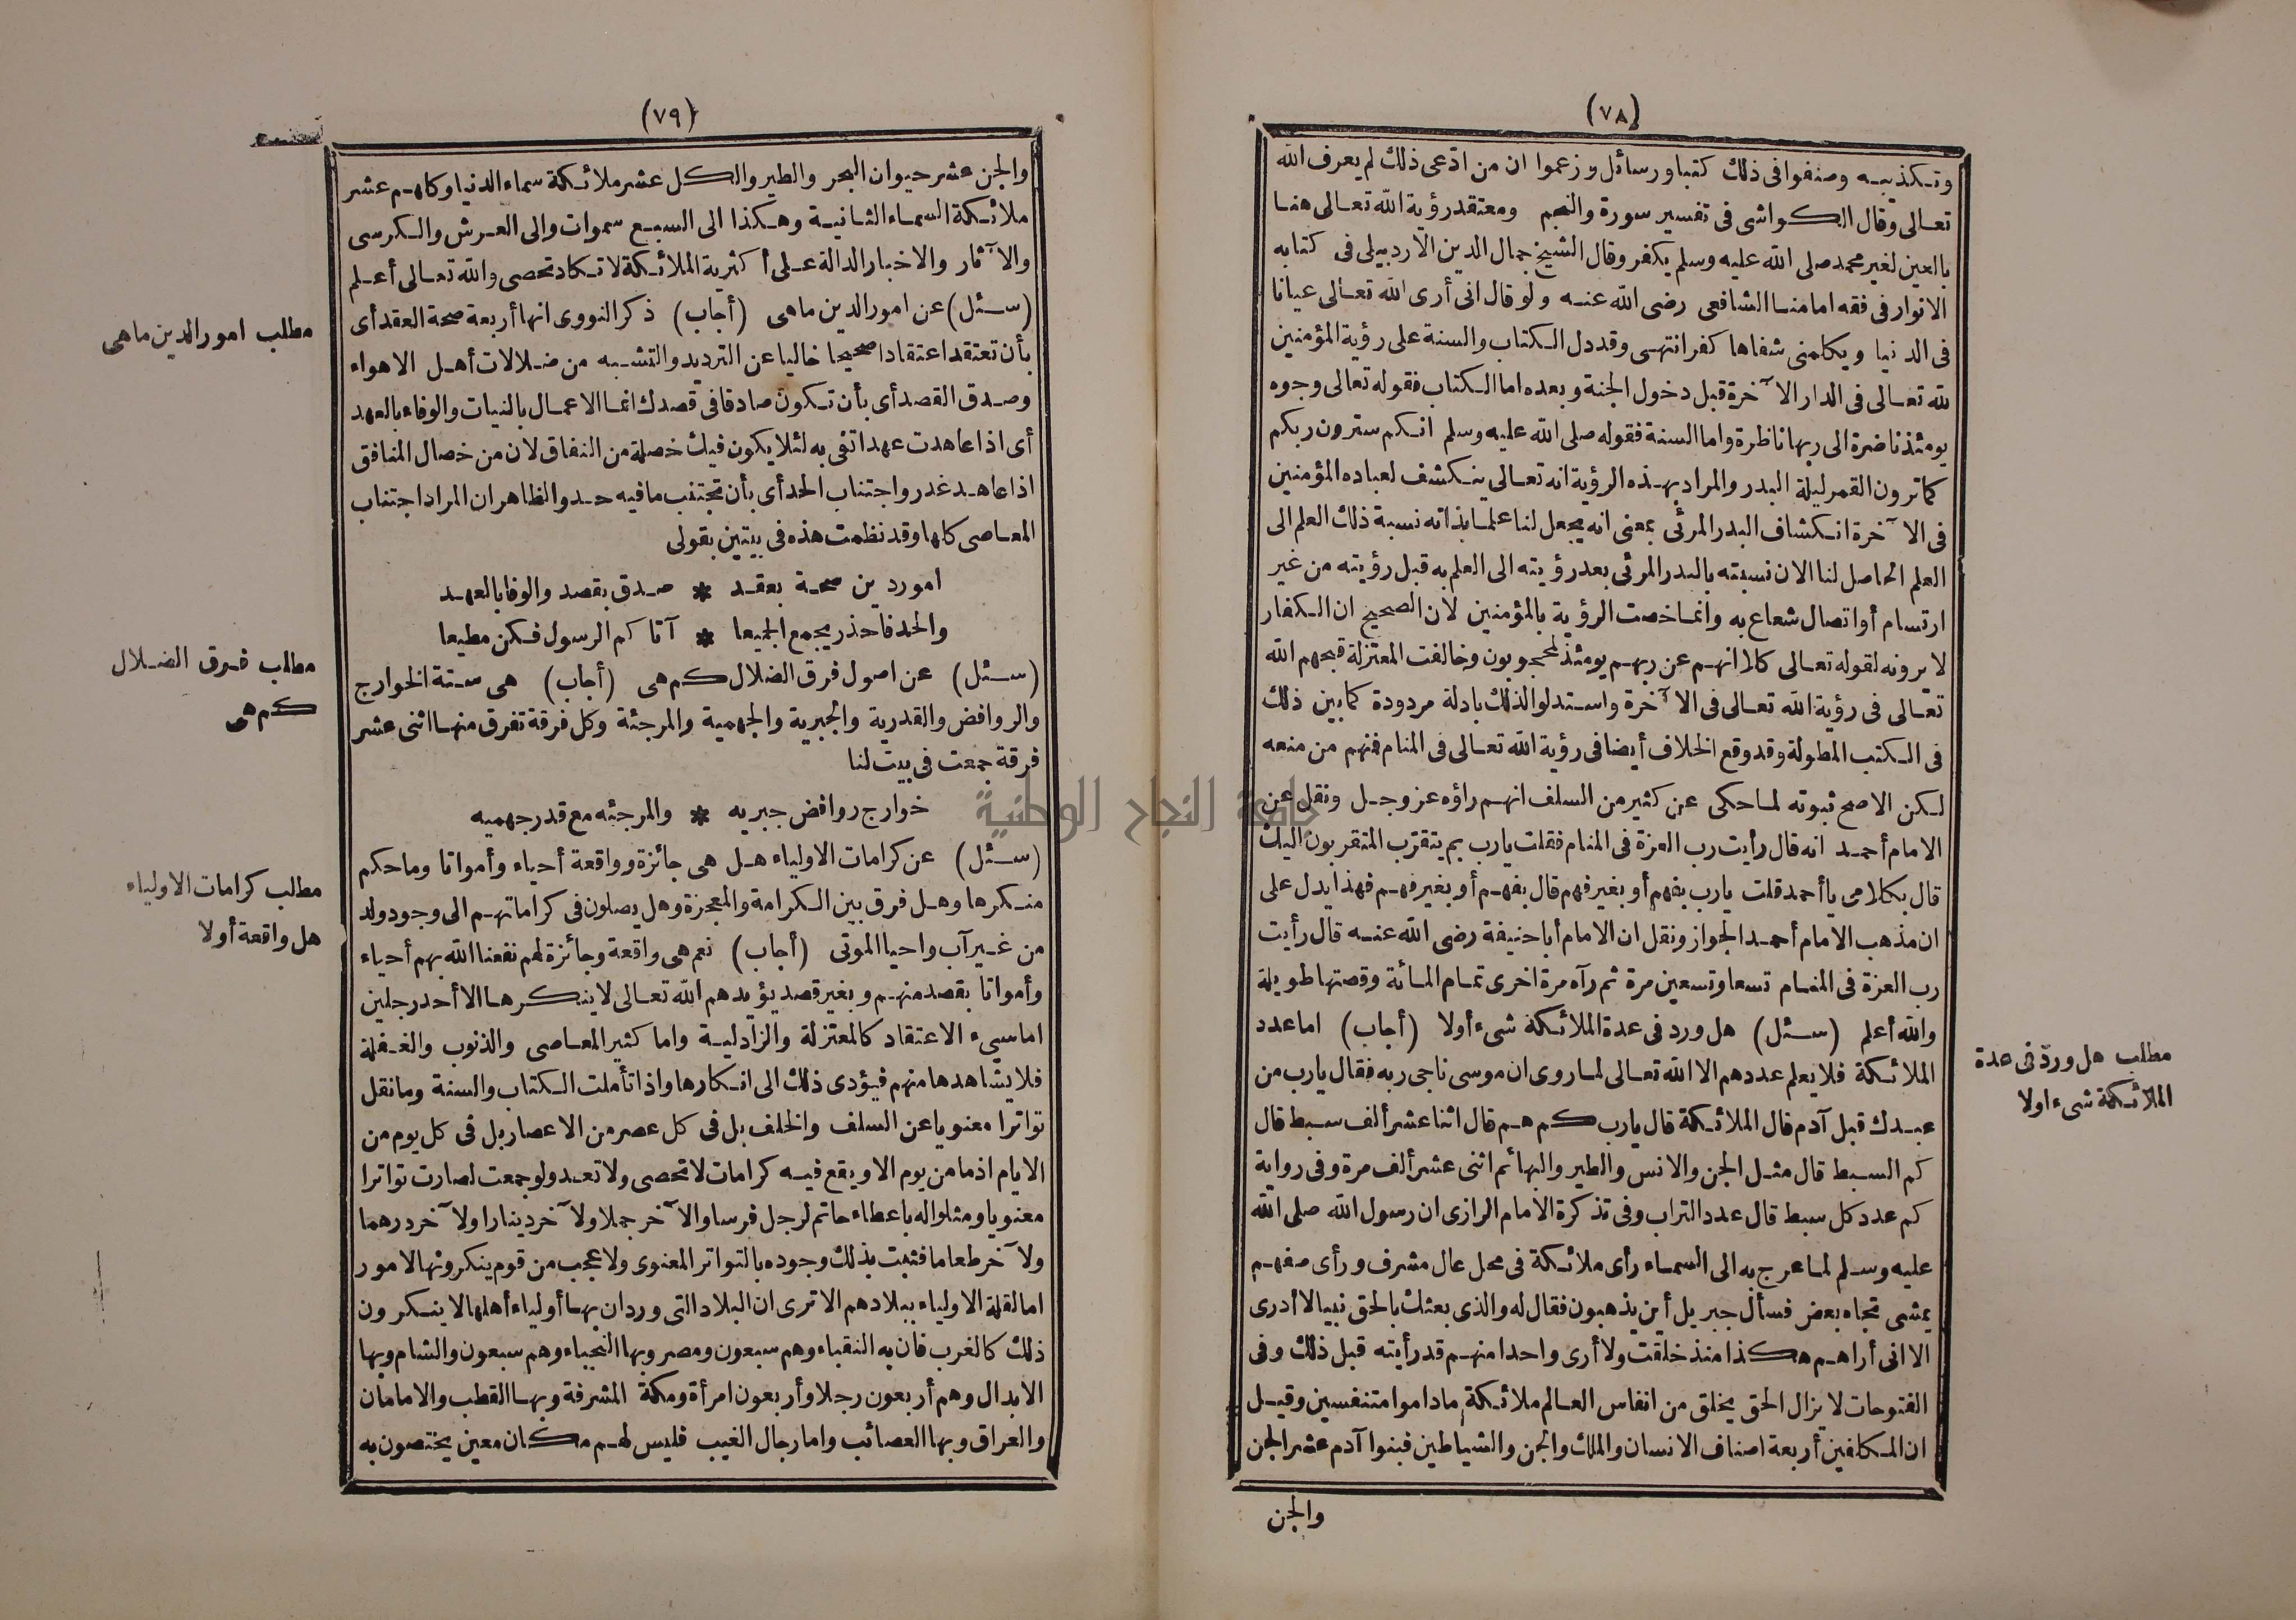 (٧٨)
وتكذيبه وصنفوا فى ذلك كتبا ورسائل وزعموا ان من ادّعى ذلك لم يعرف الله
تعالى وقال الكواشى فى تفسير سورة والنجم ومعتقد رؤية الله تعالى هنا
بالعين لغير محمد صلى الله عليه وسلم يكفر وقال الشيخ جمال الدين الاردبيلى فى كتابه
الانوار فى فقه امامنا الشافعى رضى الله عنه ولو قال انى أرى الله تعالى عيانا
فى الدنيا ويكلمنى شفاها كفر انتهى وقد دل الكتاب والسنة على رؤية المؤمنين
لله تعالى فى الدار الآخرة قبل دخول الجنة وبعده اما الكتاب فقوله تعالى وجوه
يومئذ ناضرة الى ربها ناظرة واما السنة فقوله صلى الله عليه وسلم انكم سترون ربكم
كما ترون القمر ليلة البدر والمراد بهذه الرؤية انه تعالى ينكشف لعباده المؤمنين
فى الآخرة انكشاف البدر المرئى بمعنى انه يجعل لنا علما بذاته نسبة ذلك العلم الى
العلم الحاصل لنا الان نسبته بالبدر المرئى بعد رؤيته الى العلم به قبل رؤيته من غير
ارتسام أو اتصال شعاع به وانما خصت الرؤية بالمؤمنين لان الصحيح ان الكفار
لا يرونه لقوله تعالى كلا انهم عن ربهم يومئذ لمحجوبون وخالفت المعتزلة قبحهم الله
تعالى فى رؤية الله تعالى فى الآخرة واستدلوا لذلك بادلة مردودة كما بين ذلك
فى الكتب المطولة وقد وقع الخلاف أيضا فى رؤية الله تعالى فى المنام فمنهم من منعه
لكن الاصح ثبوته لما حكى عن كثير من السلف انهم راؤه عز وجل ونقل عن
الامام أحمد انه قال رأيت رب العزة فى المنام فقلت يا رب بم يتقرب المتقربون اليك
قال بكلامى يا أحمد قلت يارب بفهم أو بغير فهم قال بفهم أو بغير فهم فهذا يدل على
ان مذهب الامام أحمد الجواز ونقل ان الامام أبا حنيفة رضى الله عنه قال رأيت
رب العزة فى المنام تسعا وتسعين مرة ثم رآه مرة اخرى تمام المائة وقصتها طويلة
والله أعلم (سئل) هل ورد فى عدة الملائكة شىء أولا (أجاب) اما عدد
الملائكة فلا يعلم عددهم الا الله تعالى لما روى ان موسى ناجى ربه فقال يارب من
عبدك قبل آدم قال الملائكة قال يارب كم هم قال اثنا عشر ألف سبط قال
كم السبط قال مثل الجن والانس والطير والبهائم اثنى عشر ألف مرة وفى رواية
كم عدد كل سبط قال عدد التراب وفى تذكرة الامام الرازى ان رسول الله صلى الله
عليه وسلم لما عرج به الى السماء رأى ملائكة فى محل عال مشرف ورأى صفهم
يمشى تجاه بعض فسأل جبريل أين يذهبون فقال له والذى بعثك بالحق نبيا لا أدرى
الا انى أراهم هكذا منذ خلقت ولا أرى واحدا منهم قد رأيته قبل ذلك وفى
الفتوحات لا يزال الحق يخلق من انفاس العالم ملائكة ماداموا متنفسين وقيل
ان المكلفين أربعة اصناف الانسان والملك والجن والشياطين فبنوا آدم عشر الجن
والجن
مطلب هل ورد فى عدة
الملائكة شىء اولا
(٧٩)
والجن عشر حيوان البحر والطير والكل عشر ملائكة سماء الدنيا وكلهم عشر
ملائكة السماء الثانية وهكذا الى السبع سموات والى العرش والكرسى
والآثار والاخبار الدالة على أكثرية الملائكة لا تكاد تحصى والله تعالى أعلم
(سئل) عن امور الدين ماهى (أجاب) ذكر النووى انها أربعة صحة العقد أى
بأن تعتقد اعتقادا صحيحا خاليا عن الترديد والتشبه من ضلالات أهل الاهواء
وصدق القصد أى بأن تكون صادقا فى قصدك انما الاعمال بالنيات والوفاء بالعهد
أى اذا عاهدت عهدا تفى به لئلا يكون فيك خصلة من النفاق لان من خصال المنافق
اذا عاهد غدر واجتناب الحد أى بأن تجتنب ما فيه حد والظاهر ان المراد اجتناب
المعاصى كلها وقد نظمت هذه فى بيتين بقولى
امور دين صحة بعقد * صدق بقصد والوفا بالعهد
والحد فاحذر يجمع الجميعا * آتاكم الرسول فكن مطيعا
(سئل) عن اصول فرق الضلال كم هى (أجاب) هى ستة الخوارج
والروافض والقدرية والجبرية والجهمية والمرجئة وكل فرقة تفرق منها اثنى عشر
فرقة جمعت فى بيت لنا
خوارج روافض جبريه * والمرجئه مع قدر جهميه
(سئل) عن كرامات الاولياء هل هى جائزة وواقعة أحياء وأمواتا وما حكم
منكرها وهل فرق بين الكرامة والمعجزة وهل يصلون فى كراماتهم الى وجود ولد
من غير آب واحيا الموتى (أجاب) نعم هى واقعة وجائزة لهم نفعنا الله بهم أحياء
وأمواتا بقصد منهم وبغير قصد يؤيدهم الله تعالى لا ينكرها الا أحد رجلين
اما سىء الاعتقاد كالمعتزلة والزادلية واما كثير المعاصى والذنوب والغفلة
فلا يشاهدها منهم فيؤدى ذلك الى انكارها واذا تأملت الكتاب والسنة وما نقل
تواترا معنويا عن السلف والخلف بل فى كل عصر من الاعصار بل فى كل يوم من
الايام اذ ما من يوم الا ويقع فيه كرامات لا تحصى ولا تعد ولو جمعت لصارت تواترا
معنويا ومثلوا له باعطاء حاتم لرجل فرسا والآخر جملا ولآخر دينارا ولآخر درهما
ولآخر طعاما فثبت بذلك وجوده بالتواتر المعنوى ولا عجب من قوم ينكرونها لامور
اما لقلة الاولياء ببلادهم الا ترى ان البلاد التى ورد ان بها أولياء أهلها لا ينكرون
ذلك كالغرب فان به النقباء وهم سبعون ومصر وبها النجباء وهم سبعون والشام وبها
الابدال وهم أربعون رجلا وأربعون امرأة ومكة المشرفة وبها القطب والامامان
والعراق وبها العصائب واما رجال الغيب فليس لهم مكان معين يختصون به
مطلب امور الدين ماهى
مطلب فرق الضلال
كم هى
مطلب كرامات الاولياء
هل واقعة أولا
جامعة النجاح الوطنية